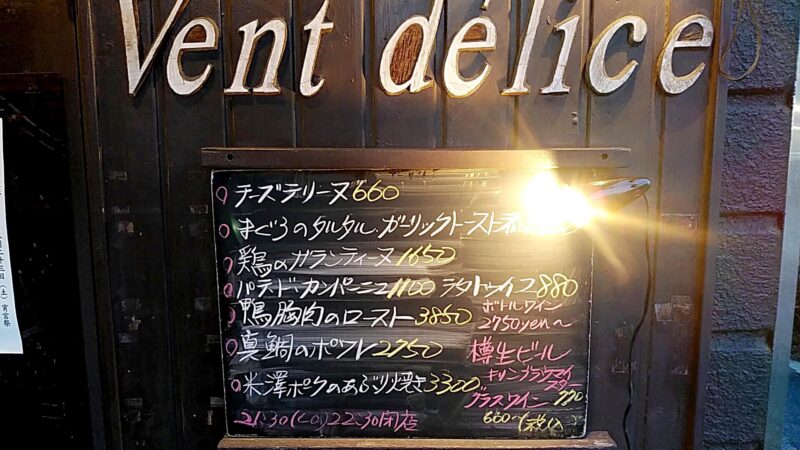 Vent délice
チーズテリーヌ 660
まぐろのタルタル、ガーリックトースト添
鶏のガランティーヌ 1650
パテドカンパーニュ 1100 ラタトゥイユ 880
鴨胸肉のロースト 3850
ボトルワイン
2750yen〜
真鯛のポワレ 2750
樽生ビール
キリンブラウマイスター 770
米澤ポークのあぶり焼き 3300
グラスワイン
660〜(税込)
21:30(LO) 22:30閉店
二十三日(土) 宵宮祭